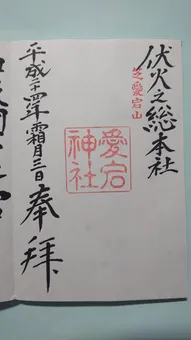 伏火之総本社
芝愛宕山
愛宕
神社
平成二十四年霜月三日
奉拝